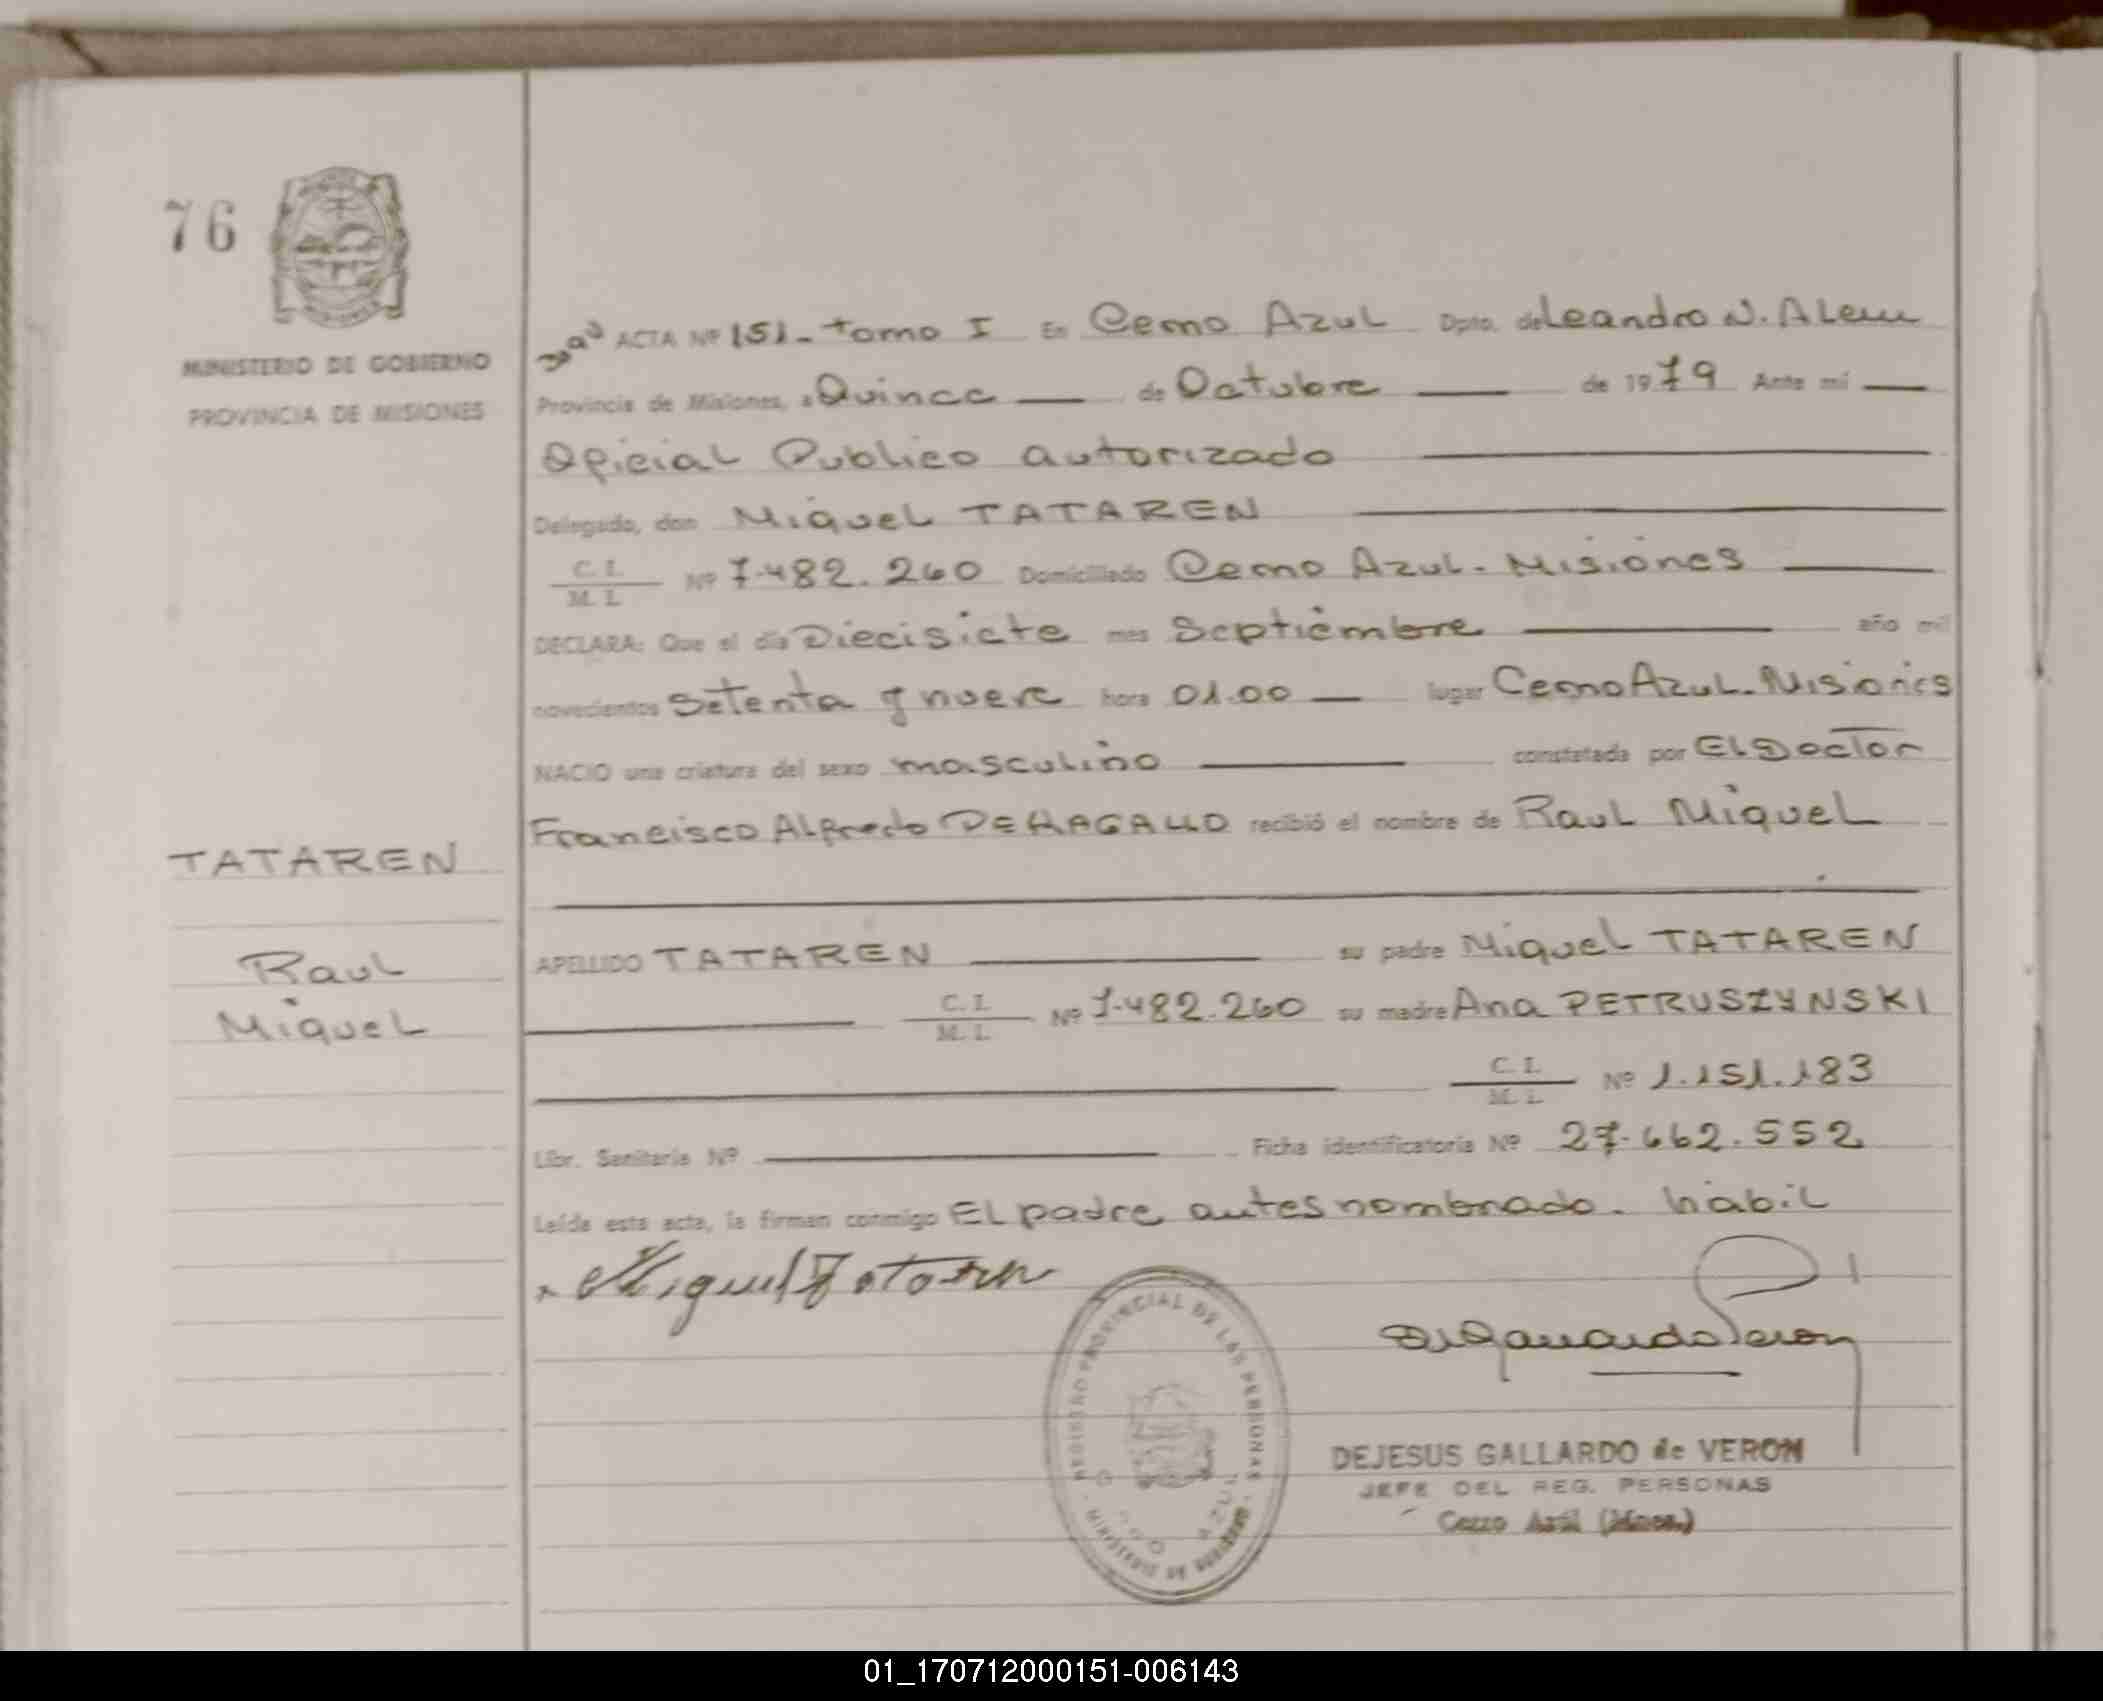 76
MINISTERIO DE GOBIERNO
PROVINCIA DE MISIONES
TATAREN
Raul
Miguel
ACTA Nº 151 - tomo I En Cerro Azul Dpto. de Leandro N. Alem
Provincia de Misiones, a Quince — de Octubre — de 1979 Ante mí —
Oficial Publico autorizado —
Delegado, don Miguel TATAREN —
C. I. / M. I. Nº 7.482.260 Domiciliado Cerro Azul. Misiones —
DECLARA: Que el día Diecisiete mes Septiembre — año mil
novecientos setenta y nueve hora 01.00 — lugar Cerro Azul. Misiones
NACIO una criatura del sexo masculino — constatada por El Doctor
Francisco Alfredo recibió el nombre de Raul Miguel
APELLIDO TATAREN — su padre Miguel TATAREN
— C. I. / M. I. Nº 7.482.260 su madre Ana PETRUSZYNSKI
— C. I. / M. I. Nº 1.151.183
Libr. Sanitaria Nº — Ficha identificatoria Nº 27.662.552
Leída esta acta, la firman conmigo El padre antes nombrado. habil
Miguel Tataren
REGISTRO PROVINCIAL DE LAS PERSONAS
DEJESUS GALLARDO de VERON
JEFE DEL REG. PERSONAS
Cerro Azul (Mnes.)
01_170712000151-006143